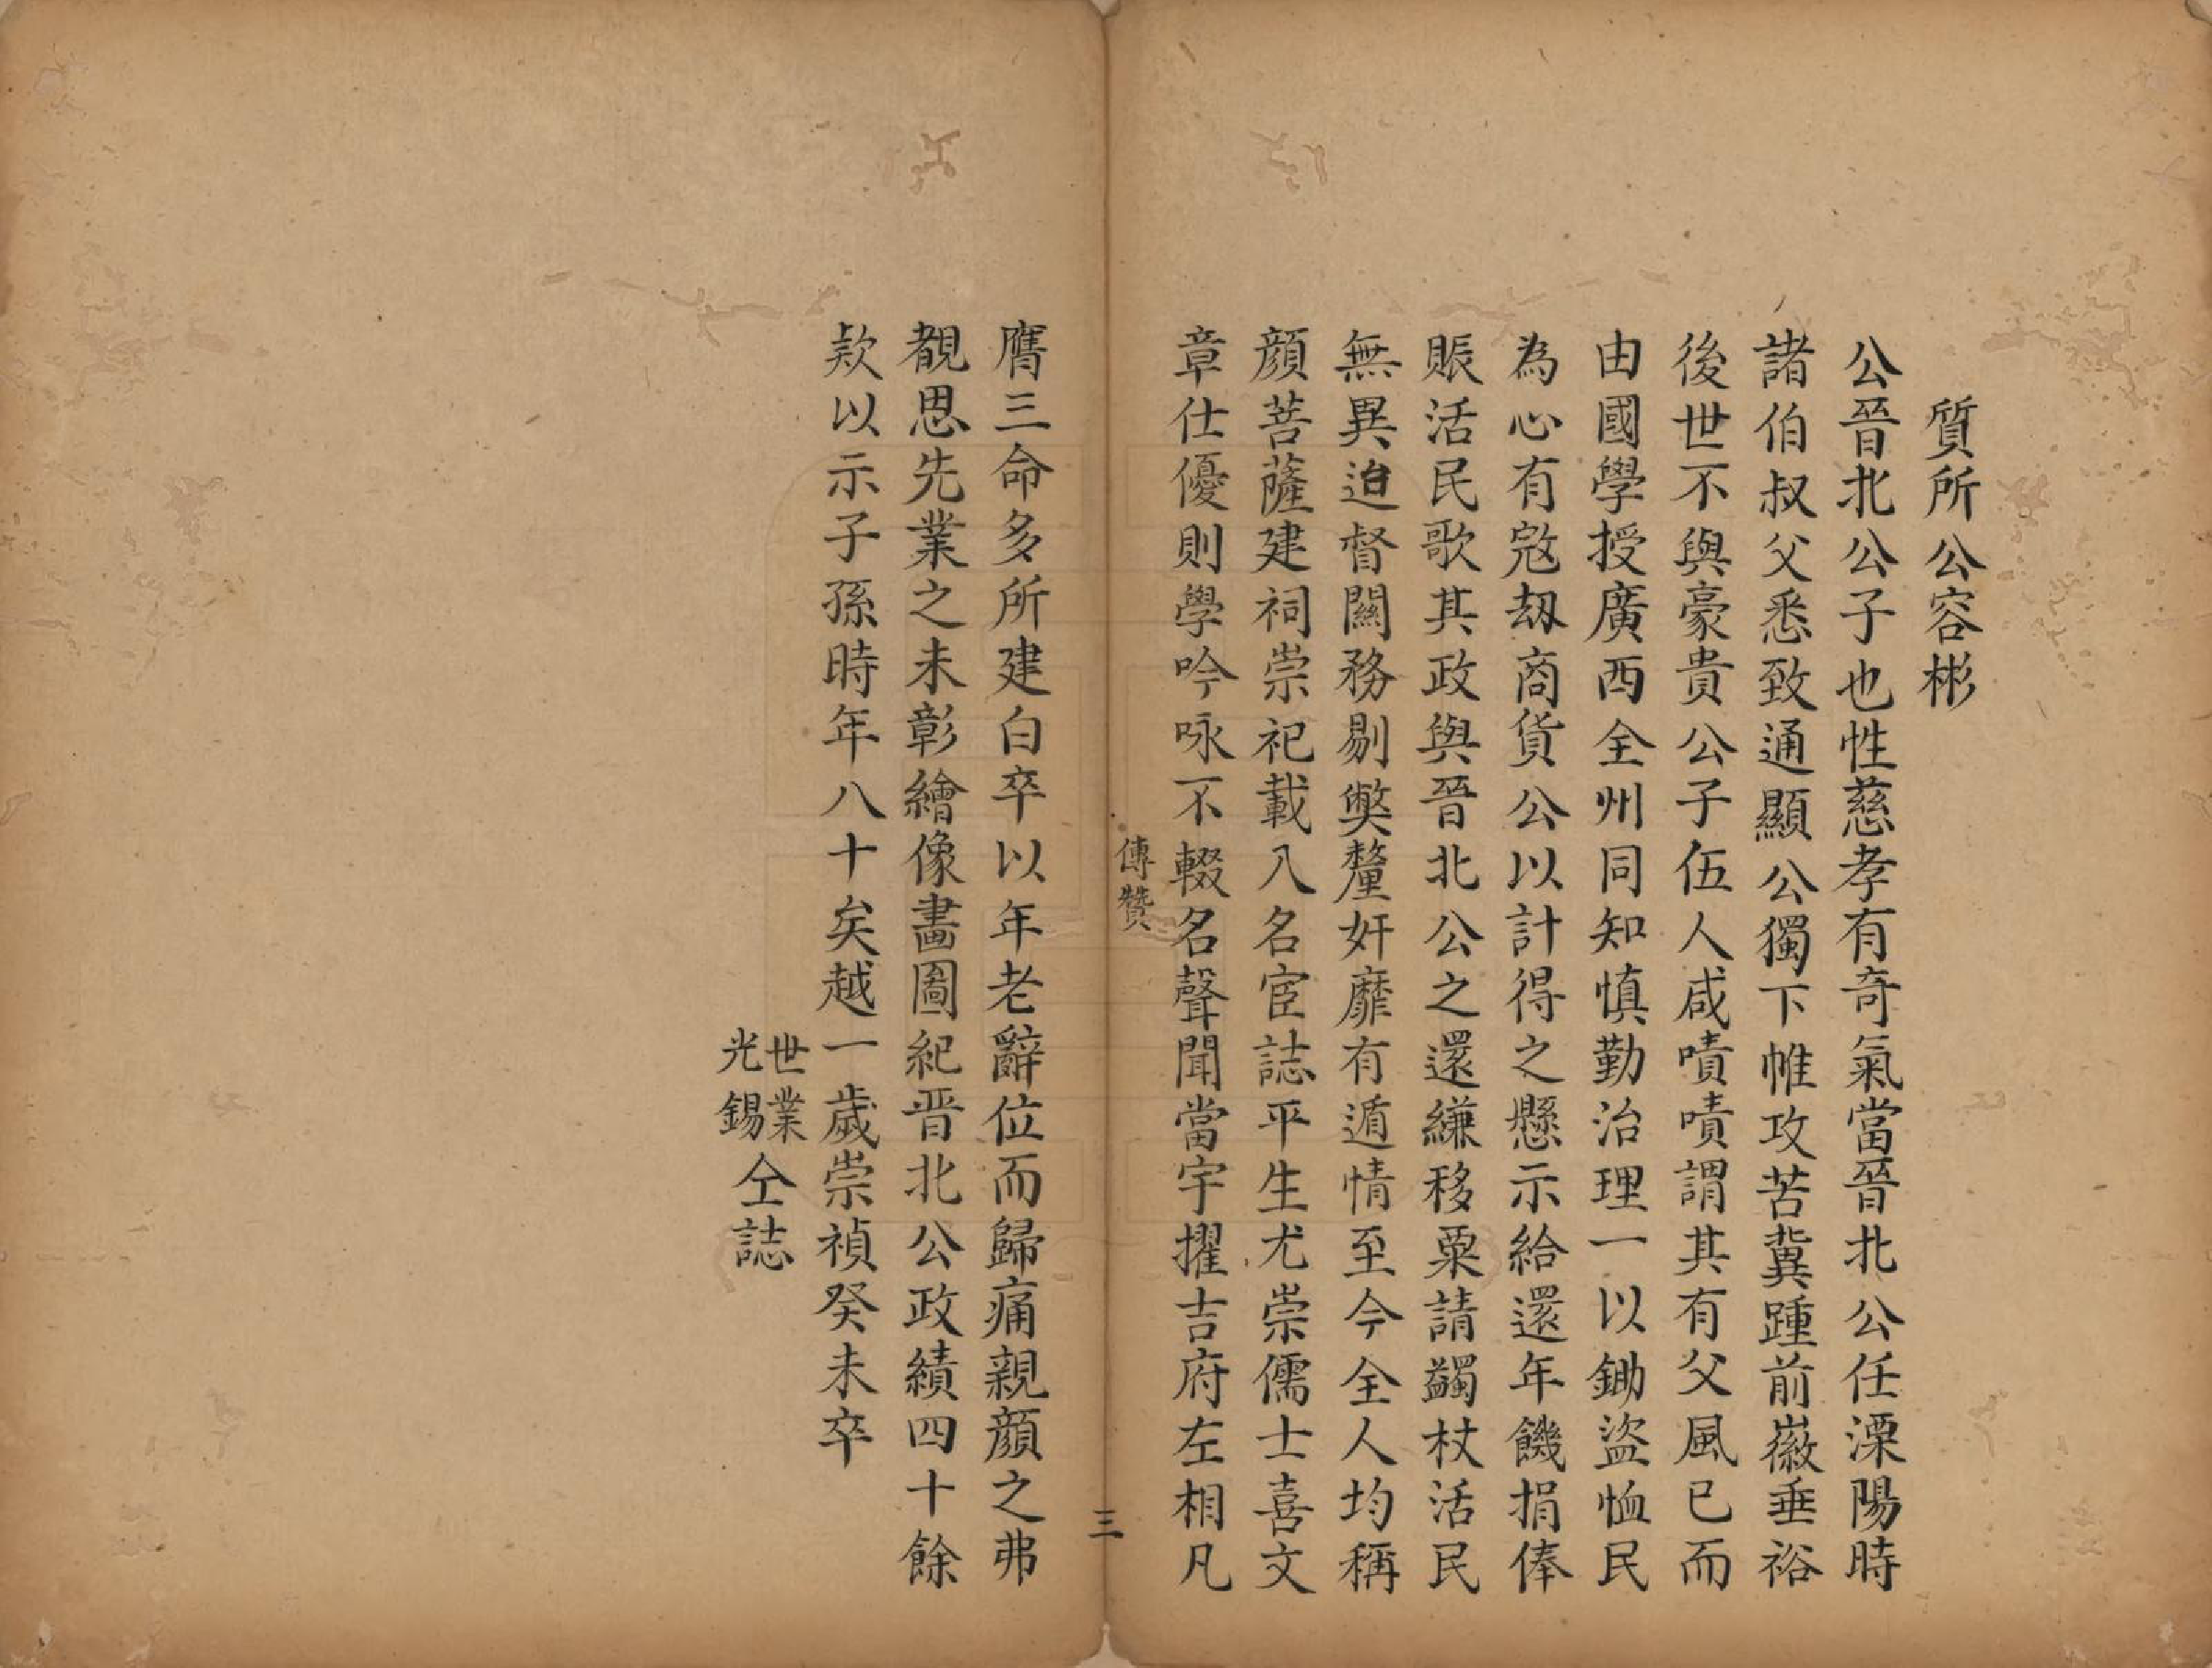 質所公容彬
公晉北公子也性慈孝有奇氣當晉北公任溧陽時
諸伯叔父悉致通顯公獨下帷攻苦冀踵前徽垂裕
後世不與豪貴公子伍人咸嘖嘖謂其有父風已而
由國學授廣西全州同知慎勤治理一以鋤盜恤民
為心有寇刼商貨公以計得之懸示給還年饑捐俸
賑活民歌其政與晉北公之還縑移粟請蠲杖活民
無異迨督關務剔獘釐奸靡有遁情至今全人均稱
顏菩薩建祠崇祀載入名宦誌平生尤崇儒士喜文
章仕優則學吟咏不輟名聲聞當宇擢吉府左相凡
傳贊
三
膺三命多所建白卒以年老辭位而歸痛親顏之弗
覩思先業之未彰繪像畫圖紀晋北公政績四十餘
欵以示子孫時年八十矣越一歲崇禎癸未卒
世業
光錫
仝誌